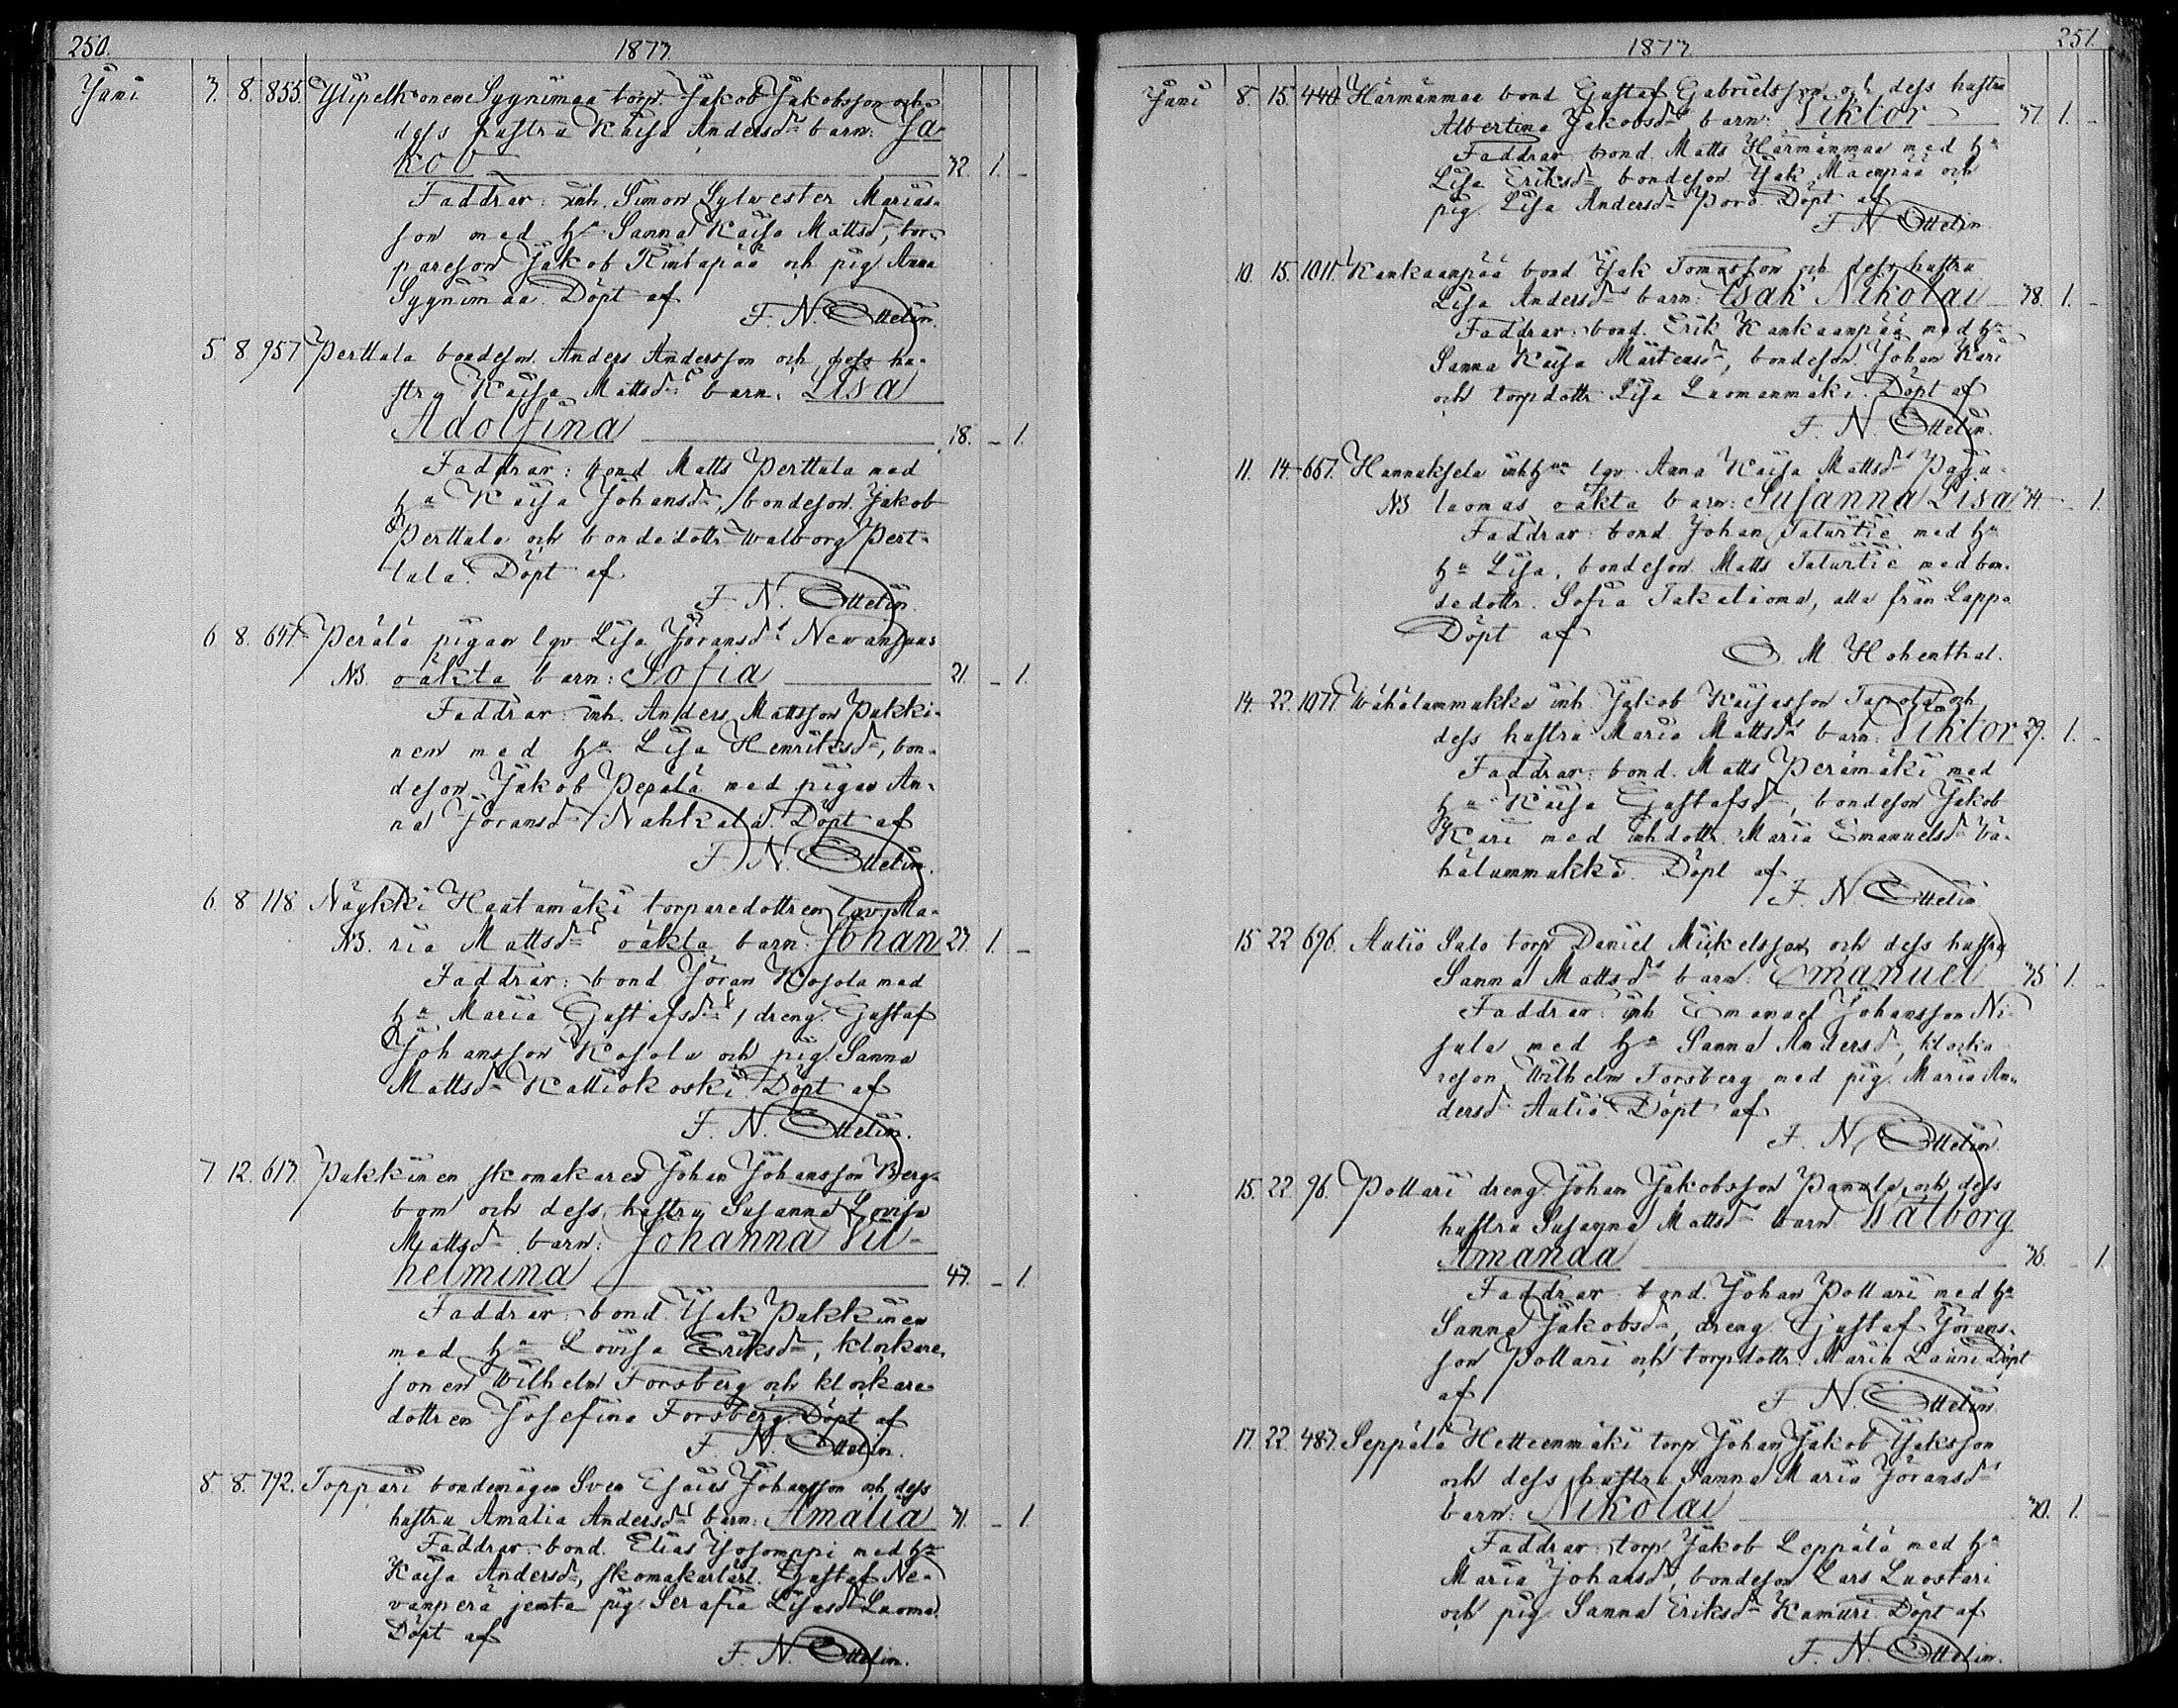 250. 1873.
Juni 3. 8. 855. Ylipelkonene Syynimaa torp. Jakob Jakobsson och
dess hustru Kaisa Andersdr barn: Ja-
kob 32. 1. -
Faddrar: inh. Simon Sylwester Marias-
son med hu Sanna Kaisa Mattsdr, tor-
pareson Jakob Rintapää och pig. Anna
Syynimaa. Döpt af
F. N. Ottelin.
5 8 957 Perttala bondeson Anders Andersson och dess hu-
stru Kaisa Mattsdr barn: Lisa
Adolfina 18. - 1.
Faddrar: bond Matts Perttala med
hu Kaisa Johansdr, bondeson Jakob
Perttala och bondedottr Walborg Pert-
tala. Döpt af
F. N. Ottelin.
6 8. 647. Perälä pigan lqv. Lisa Jöransdr Newanpuus
NB. oäkta barn: Sofia 21. - 1.
Faddrar: inh. Anders Mattsson Pukki-
nen med hu Lisa Henriksdr, bon-
deson Jakob Perälä med pigan An-
na Jöransdr Nahkala. Döpt af
F. N. Ottelin.
6. 8 118. Näykki Haatamäki torparedottren lqv. Ma-
NB. ria Mattsdr oäkta barn: Johan 23. 1. -
Faddrar: bond Jöran Kosola med
hu Maria Gustafsdr, dreng. Gustaf
Johansson Kosola och pig. Sanna
Mattsdr Kattiokoski. Döpt af
F. N. Ottelin.
7 12. 613. Pukkinen skomakaren Johan Johansson Berg-
bom och dess hustru Susanna Lovisa
Mattsdr barn: Johanna Vil-
helmina 43. - 1.
Faddrar: bond. Isak Pukkinen
med hu Lovisa Eriksdr, klockare-
sonen Wilhelm Forsberg och klockare-
dottren Josefina Forsberg. Döpt af
F. N. Ottelin.
8. 8. 792. Toppari bondemågen Sven Esaias Johansson och dess
hustru Amalia Andersdr barn: Amalia 31. - 1.
Faddrar: bond. Elias Ysosomppi med hu
Kaisa Andersdr, skomakarlärl. Gustaf Ne-
vanperä jemte pig Serafia Lisasdr Luoma.
Döpt af
F. N. Ottelin.
1873. 251.
Juni 8. 15. 440. Härmänmaa bond Gustaf Gabrielsson och dess hustru
Albertina Jakobsdr barn: Viktor 37. 1. -
Faddrar: bond. Matts Härmänmaa med hu
Lisa Eriksdr, bondeson Isak Mäenpää och
pig. Lisa Andersdr Pora. Döpt af
F. N. Ottelin.
10. 15. 1011. Kankaanpää bond Isak Tomasson och dess hustru
Lisa Andersdr barn: Isak Nikolai 38. 1. -
Faddrar: bond. Erik Kankaanpää med hu
Sanna Kaisa Mårtensdr, bondeson Johan Kari
och torpdottr Lisa Luomanmäki. Döpt af
F. N. Ottelin.
11. 14. 667. Hannuksela lqv. Anna Kaisa Mattsdr Paju-
NB. laomas oäkta barn: Susanna Lisa 34. - 1.
Faddrar: bond. Johan Taturtie med hu
hu Lisa, bondeson Matts Taturtie med bon-
dedottr. Sofia Takaluoma, alla från Lappo
Döpt af
O. M Hohenthal.
14. 22. 1077. Wähälummukka inh. Jakob Kaisasson Tapola och
dess hustru Maria Mattsdr barn: Viktor 29. 1. -
Faddrar: bond. Matts Perämäki med
hu Kaisa Gustafsdr, bondeson Jakob
Kari med inhdottr. Maria Emanuelsdr Vä-
hälummukka. Döpt af
F. N Ottelin
15 22 696. Autio Salo torp Daniel Mickelsson och dess hustru
Sanna Mattsdr barn: Emanuel 35 1. -
Faddrar: inh Emanuel Johansson Ni-
sula med hu Sanna Andersdr, klocka-
reson Wilhelm Forsberg med pig. Maria An-
dersdr Autio. Döpt af
F. N. Ottelin.
15. 22 96. Pollari dreng. Johan Jakobsson Panula och dess
hustru Susanna Mattsdr barn: Walborg
Amanda 36. - 1.
Faddrar: bond. Johan Pollari med hu
Sanna Jakobsdr, dreng. Gustaf Jörans-
son Pollari och torpdottr. Maria Lauri Döpt
af
F. N. Ottelin.
17. 22. 483. Seppälä Hetteenmäki torp Johan Jakob Isaksson
och dess hustru Sanna Maria Jöransdr
barn: Nikolai 30. 1. -
Faddrar: torp. Jakob Leppälä med hu
Maria Johansdr, bondeson Lars Luostari
och pig. Sanna Eriksdr Kamuri. Döpt af
F. N. Ottelin.